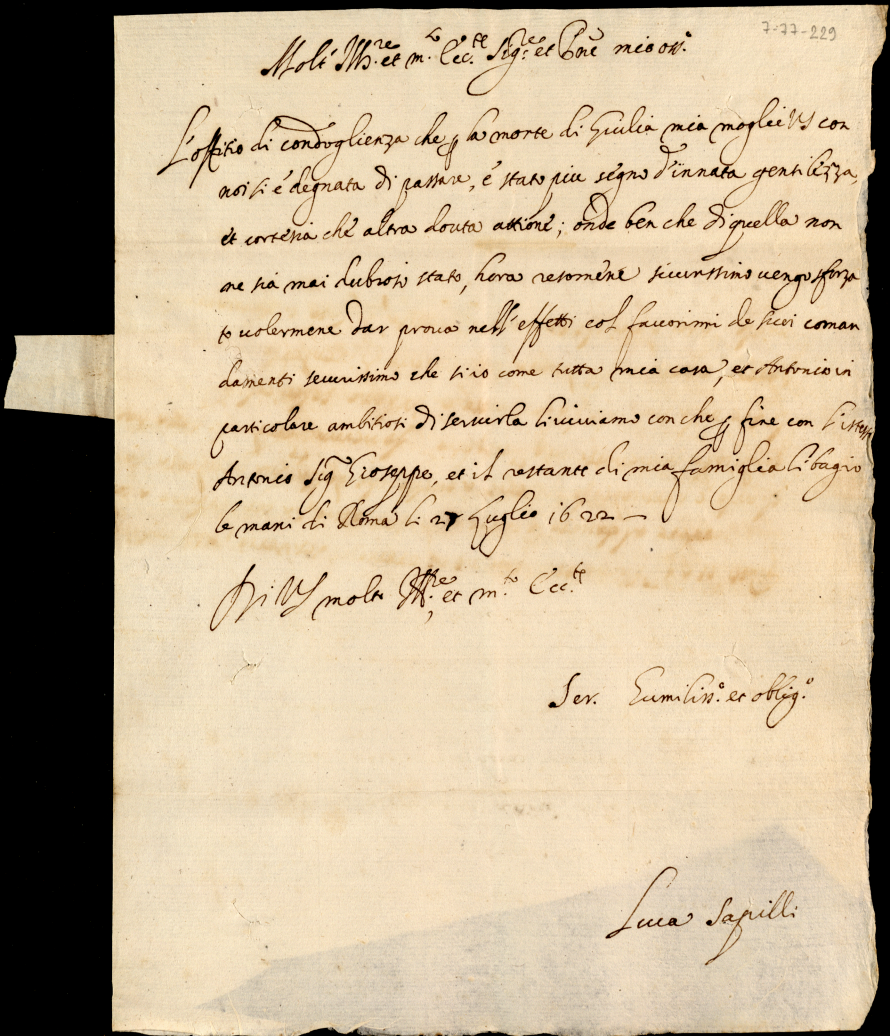 7-77-229
Molt' Ill.re et m.to Ecc.te Sig.re et Pne mio oss.o
L'offitio di condoglienza che p la morte di Giulia mia moglie VS con
noi si è degnata di passare, è stato piu segno d'innata gentilezza,
et cortesia che altra douta attione; onde ben che di quella non
ne sia mai dubioso stato, hora resomene sicurissimo uengo sforza
to uolermene dar prova nell'effetti col favorirmi de suoi coman
damenti securissimo che si io come tutta mia casa, et Antonio in
particolare ambitiosi di seruirla li uiuiamo con che p fine con l'istesso
Antonio Sig Gioseppe, et il restante di mia famiglia li bagio
le mani di Roma li 27 Luglio 1622 —
Di VS molto Ill.re et m.to Ecc.te
Ser. Humiliss.o et oblig.o
Luca Sapilli